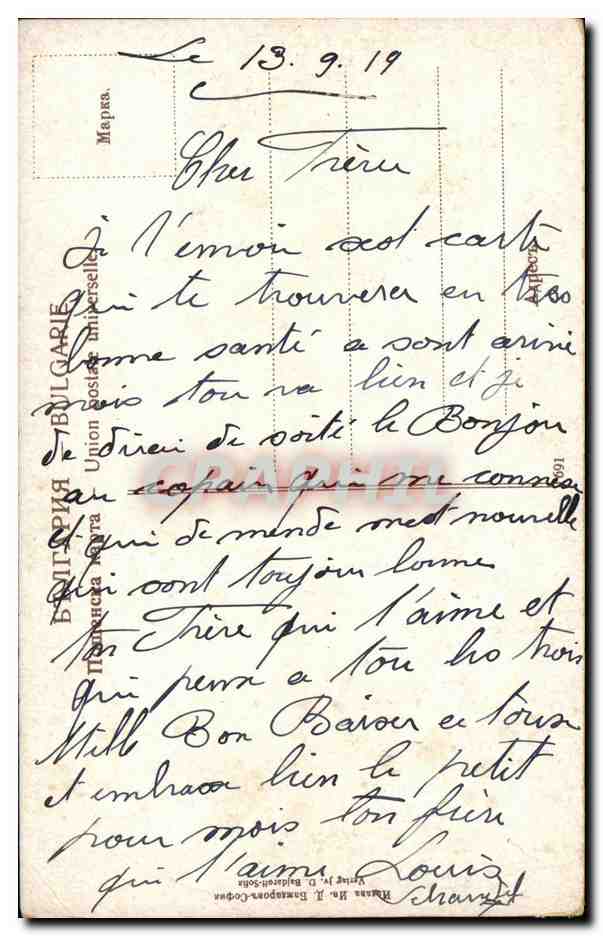 Le 13.9.19
Cher Frère
je t'envoi set carte
qui te trouverer en tres
bonne santé a sont arivé
mois tou va bien et je
de direi de soité le Bonjou
au copain qui me connese
et qui de mende mest nouvelle
qui sont toujour bonne
ton Frère qui t'aime et
qui pense a tou les trois
Mill Bon Baiser a tous
et embrase bien le petit
pour mois ton frère
qui t'aime Louis
Марка.
Адресъ
БЪЛГАРИЯ BULGARIE
Пощенска карта Union postale universelle
691
Издава Ив. Д. Баждаровъ-София
Verlag Jv. D. Bajdaroff-Sofia
CPAPHIL